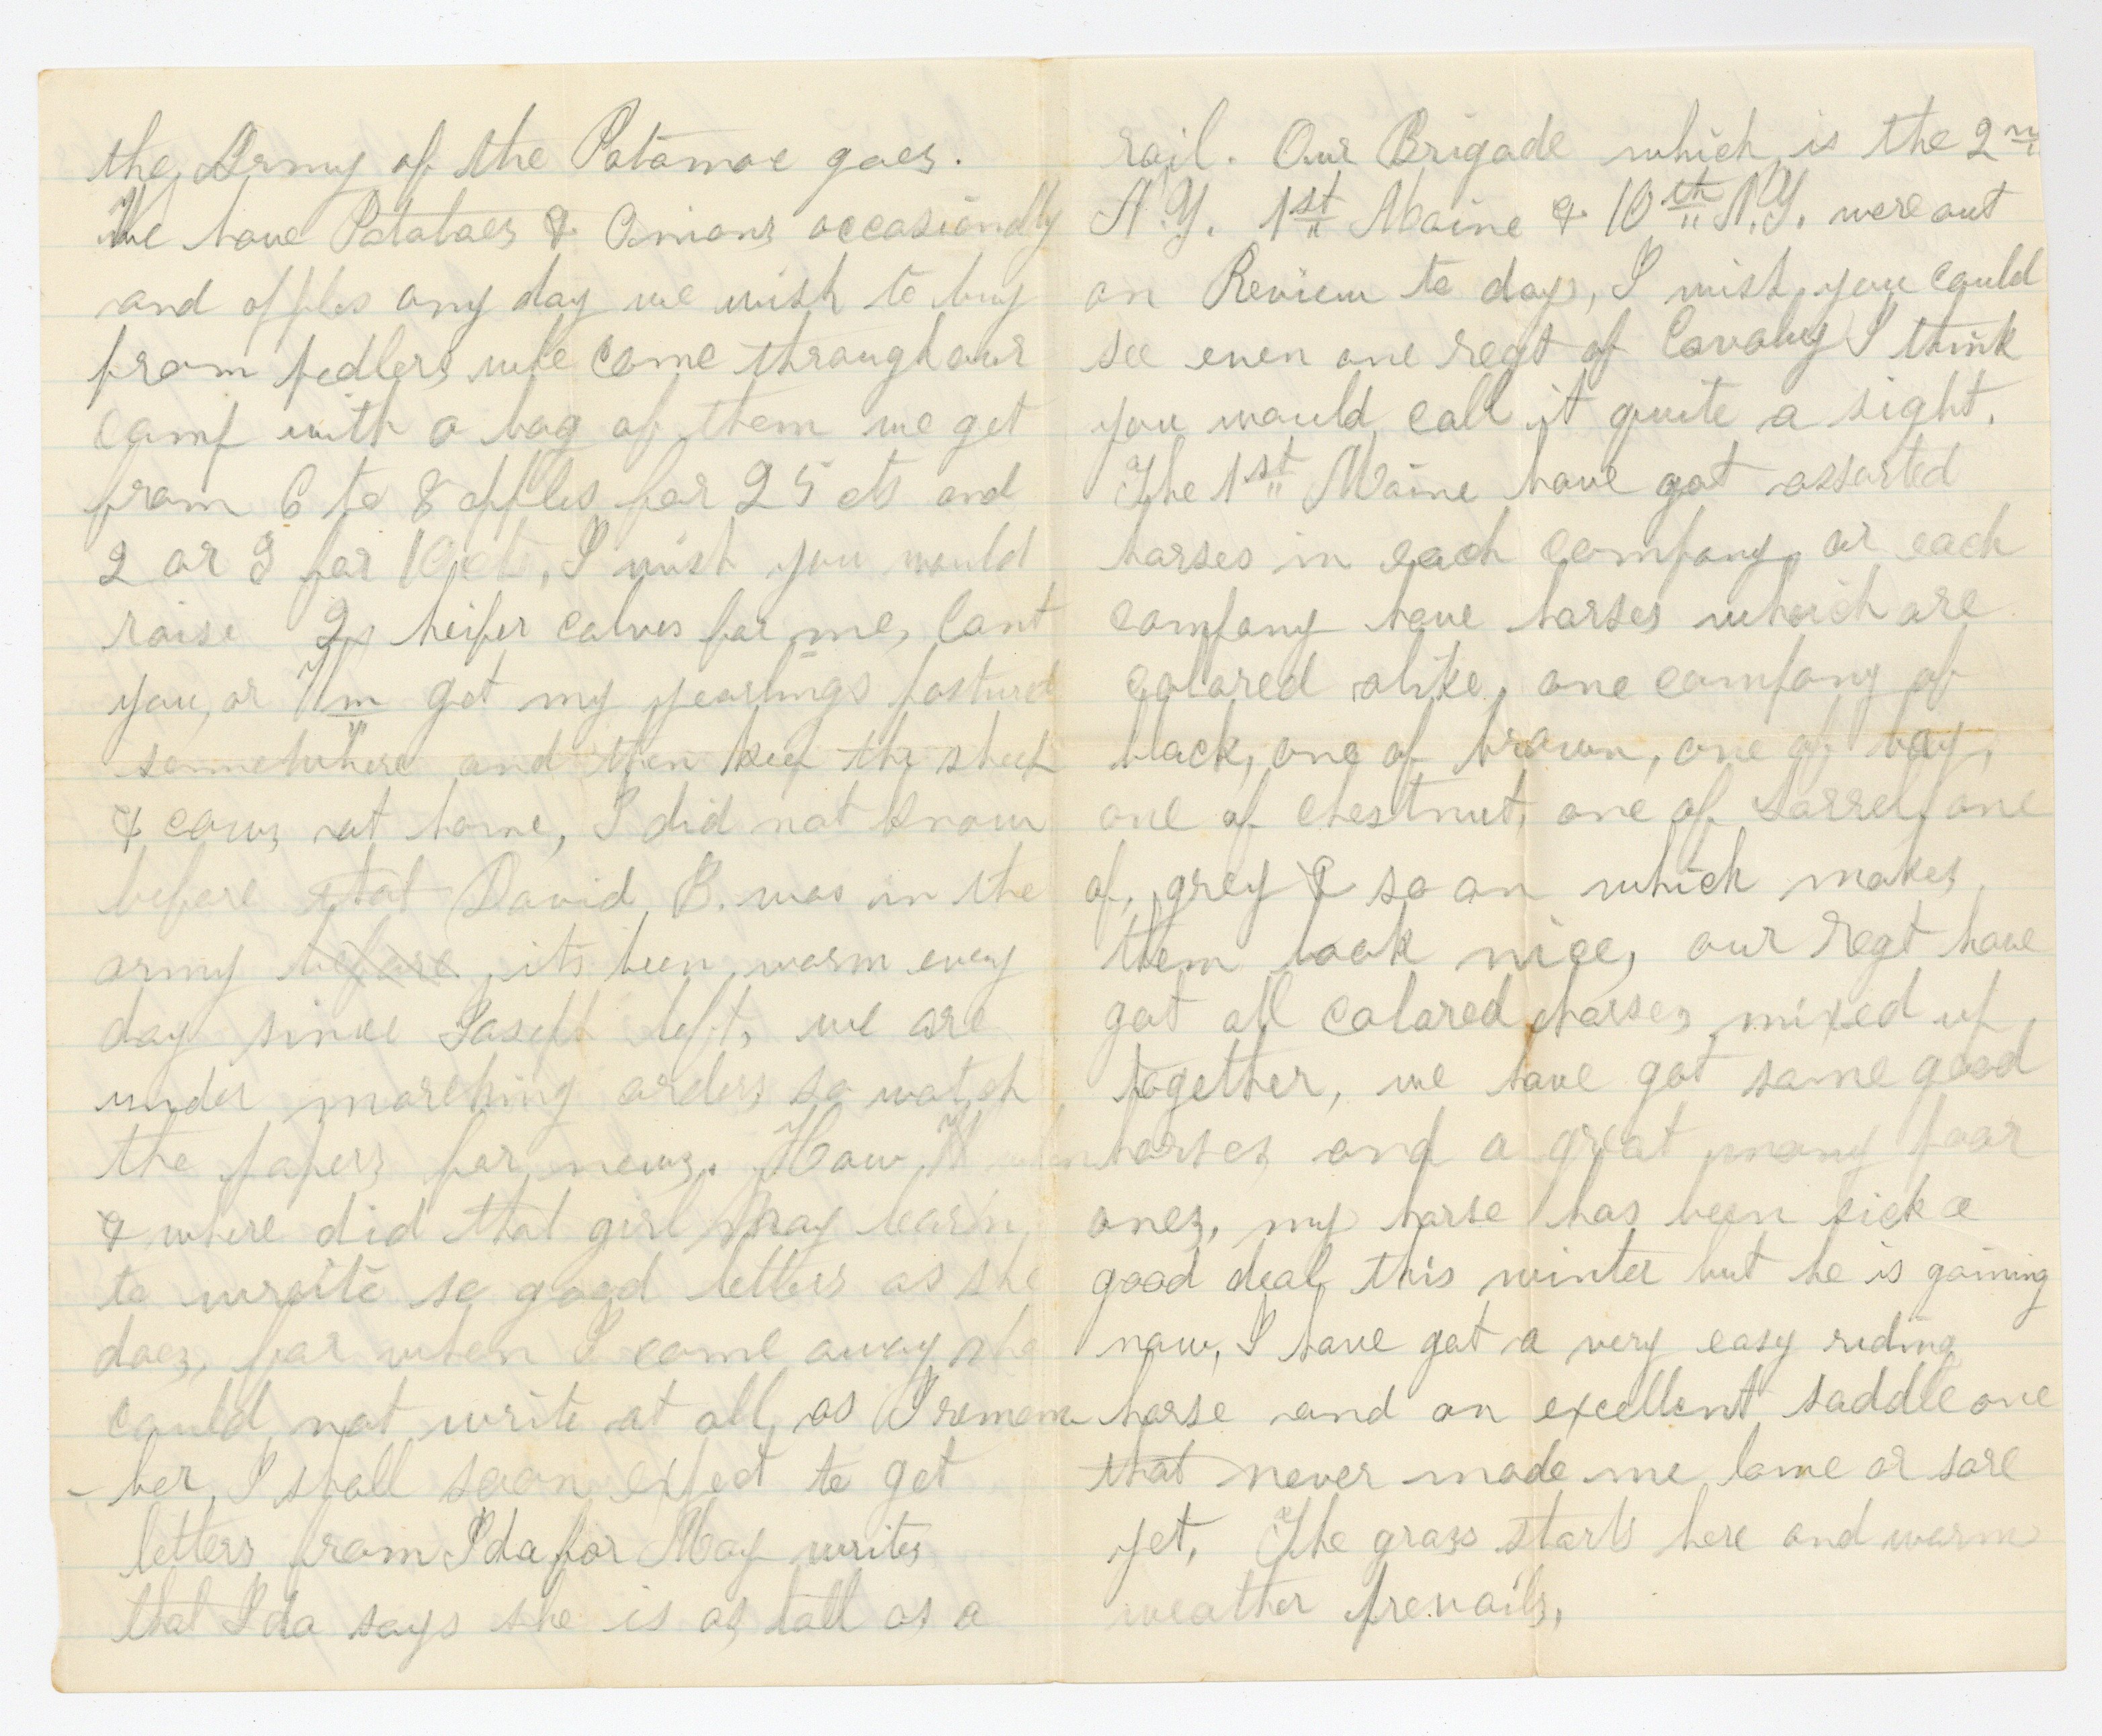 the Army of the Potamac goes.
We have Potatoes & Onions occasionally
and apples any day we wish to buy
from pedlers who come through our
camp with a bag of them we get
from 6 to 8 apples for 25 cts and
2 or 3 for 10 cts, I wish you would
raise 2 heifer calves for me, Cant
you, or Wm get my yearlings pastured
somewhere and then keep the sheep
& cows at home, I did not know
before that David B. was in the
army before, its been warm every
day since Joseph left, we are
under marching orders so watch
the papers for news. How, when
& where did that girl May learn
to write so good letters as she
does, for when I come away she
could not write at all, as I remem
-ber, I shall soon expect to get
letters from Ida for May writes
that Ida says she is as tall as a
rail. Our Brigade which is the 2nd
N.Y. 1st Maine & 10th N.Y. were out
on Review to day, I wish you could
see even one regt of Cavalry I think
you would call it quite a sight.
The 1st Maine have got assorted
horses in each company, or each
company have horses which are
colored alike, one company of
black, one of brown, one of bay,
one of chestnut, one of sorrel, one
of, grey & so on which makes
them look nice, our regt have
got all colored horses mixed up
together, we have got some good
horses and a great many poor
ones, my horse has been sick a
good deal this winter but he is gaining
now, I have got a very easy riding
horse and an excellent saddle one
that never made me lame or sore
yet. The grass starts here and warm
weather prevails.